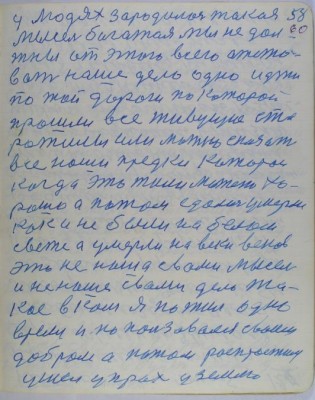 у людях зародилася такая 58
мысел богатая мы не дол 60
жны от этого всего отказо
ват наше дело одно идти
по той дороги по которой
прошли все живущие ста
рожилы или можно сказат
все наши предки которои
когда это жили может хо
рошо а потом сдались умерли
как и не были на белом
свете а умерли на веки веков
это не наша свами мысел
и не наше свами дело та
кое в ком я пожил одно
время и попользовался своим
добром а потом
ушел у прах у землю